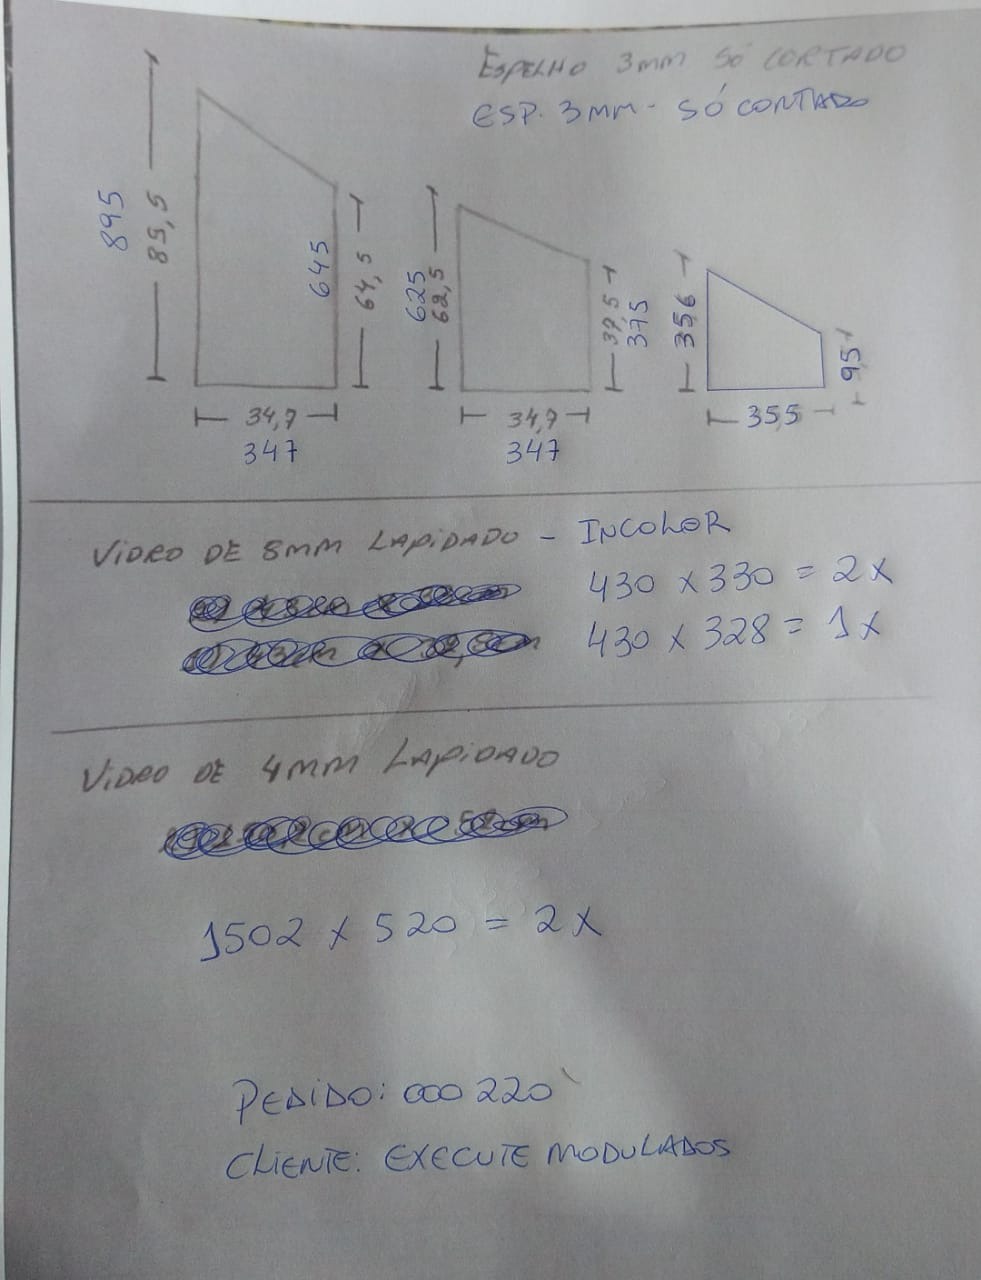 ESPELHO 3MM SÓ CORTADO
ESP. 3MM - SÓ CORTADO
895
85,5
645
64,5
625
62,5
37,5
375
356
95
34,7
347
34,7
347
355
VIDRO DE 8MM LAPIDADO - INCOLOR
430 x 330 = 2x
430 x 328 = 1x
VIDRO DE 4MM LAPIDADO
1502 x 520 = 2x
PEDIDO: 000220
CLIENTE: EXECUTE MODULADOS